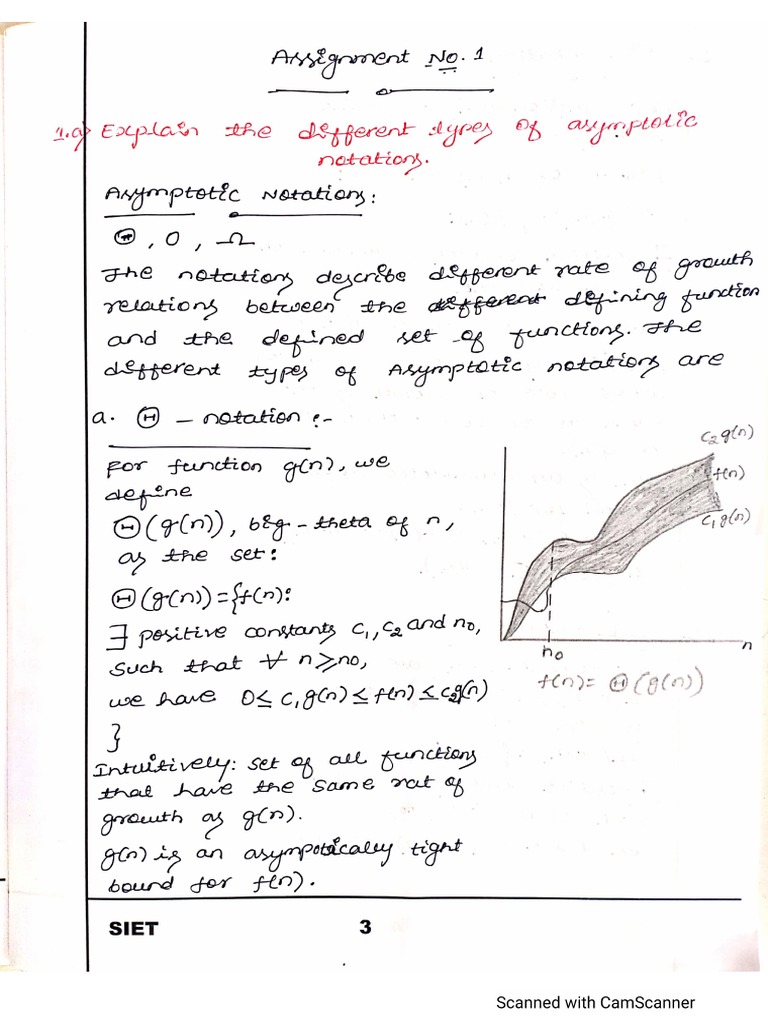 Assignment No. 1
1.a) Explain the different types of asymptotic
notations.
Asymptotic Notations:
Θ, O, Ω
The notations describe different rate of growth
relations between the different defining function
and the defined set of functions. The
different types of Asymptotic notations are
a. Θ - notation :-
For function g(n), we
define
Θ(g(n)), big-theta of n,
as the set:
Θ(g(n)) = {f(n):
∃ positive constants c1, c2 and n0,
such that ∀ n ≥ n0,
we have 0 ≤ c1g(n) ≤ f(n) ≤ c2g(n)
}
Intuitively: set of all functions
that have the same rat of
growth as g(n).
g(n) is an asympotically tight
bound for f(n).
c2 g(n)
f(n)
c1 g(n)
n
n0
f(n) = Θ(g(n))
SIET 3
Scanned with CamScanner